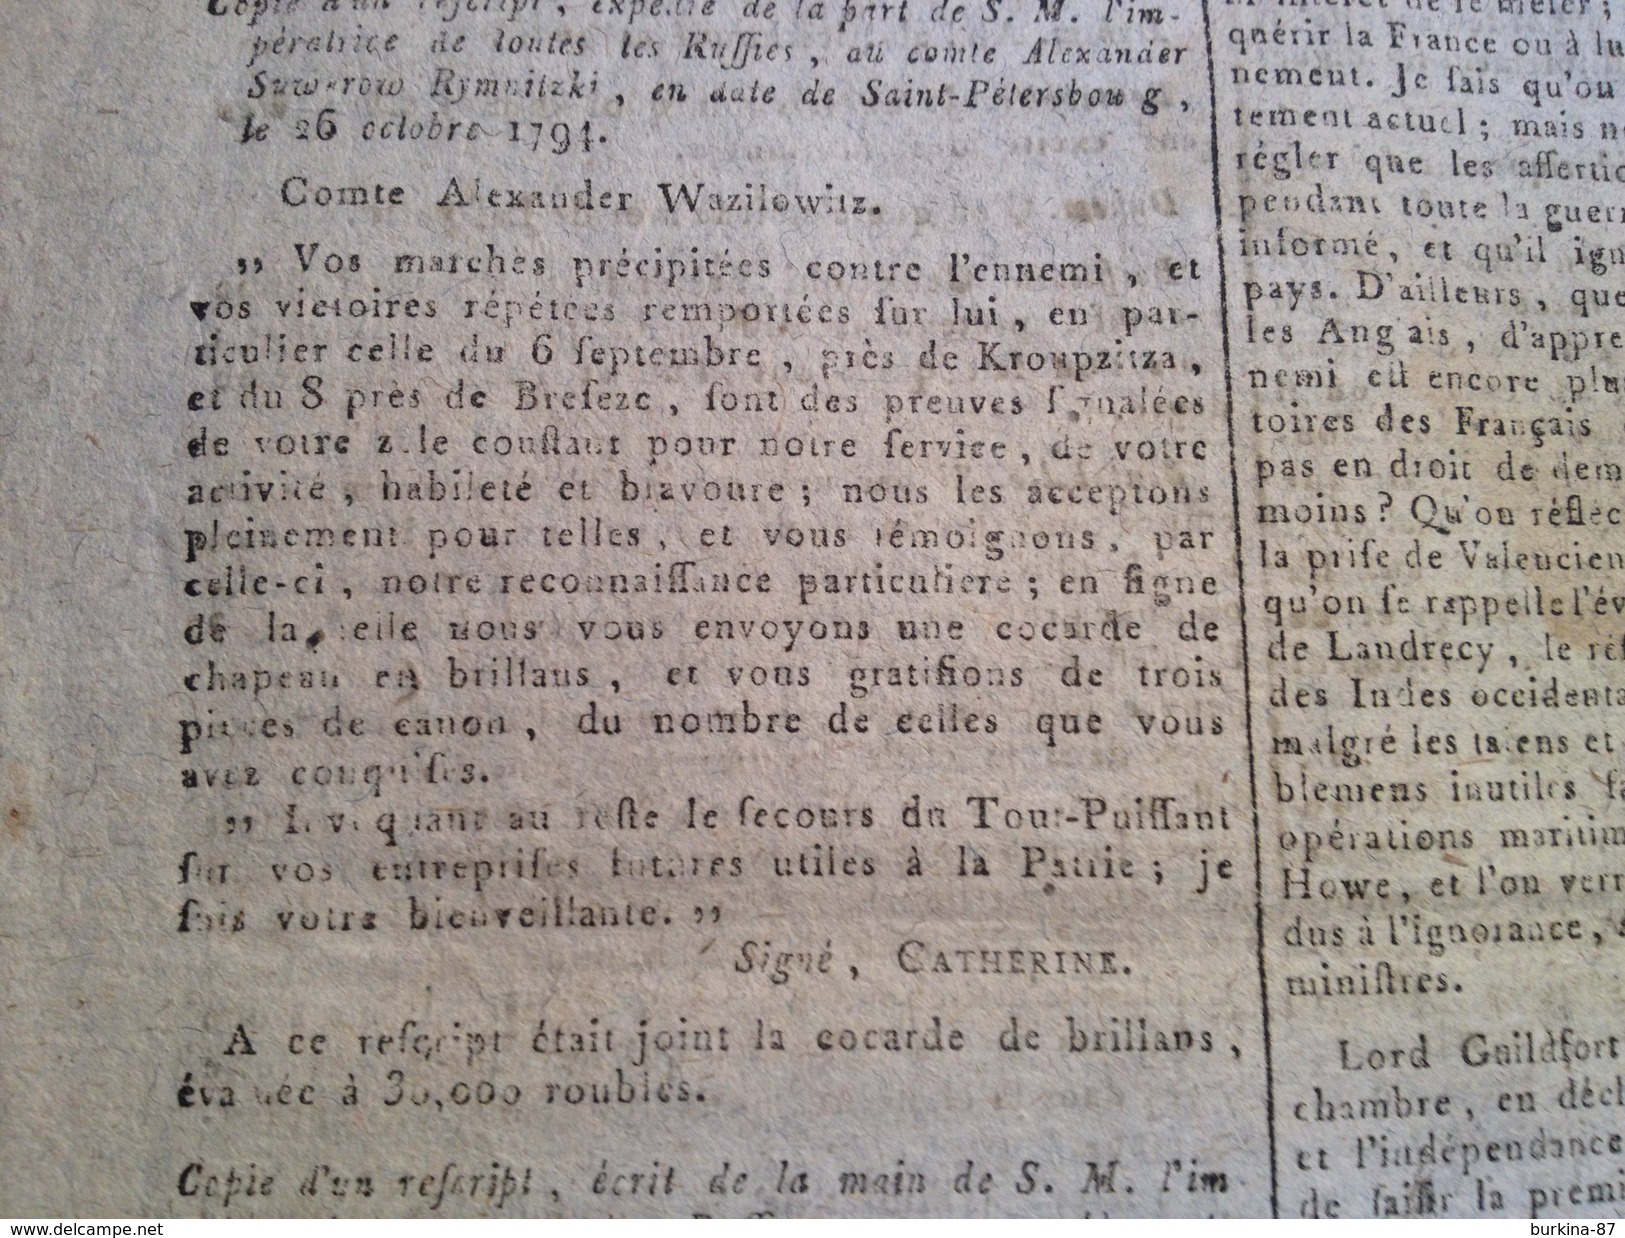 Copie d'un reſcript, expédié de la part de S. M. l'im-
pératrice de toutes les Ruſſies, au comte Alexander
Suwarow Rymnitzki, en date de Saint-Pétersbou g,
le 26 octobre 1794.
Comte Alexander Wazilowitz.
,, Vos marches précipitées contre l'ennemi, et
vos victoires répétées remportées ſur lui, en par-
ticulier celle du 6 ſeptembre, près de Kroupzitza,
et du 8 près de Breſezc, ſont des preuves ſignalées
de votre zèle conſtant pour notre ſervice, de votre
activité, habileté et bravoure; nous les acceptons
pleinement pour telles, et vous témoignons, par
celle-ci, notre reconnaiſſance particuliere; en ſigne
de laquelle nous vous envoyons une cocarde de
chapeau en brillans, et vous gratifions de trois
pieces de canon, du nombre de celles que vous
avez conquiſes.
,, Invoquant au reſte le ſecours du Tout-Puiſſant
ſur vos entrepriſes futures utiles à la Patrie; je
ſuis votre bienveillante. ,,
Signé, CATHERINE.
A ce reſcript était joint la cocarde de brillans,
évaluée à 30,000 roubles.
Copie d'un reſcript, écrit de la main de S. M. l'im-
quérir la France ou à lu
nement. Je ſais qu'on
tement actuel; mais n
régler que les aſſertio
pendant toute la guerr
informé, et qu'il ign
pays. D'ailleurs, que
les Anglais, d'appre
nemi eſt encore plu
toires des Français
pas en droit de dem
moins? Qu'on réflec
la priſe de Valencien
qu'on ſe rappelle l'év
de Landrecy, le réſ
des Indes occidenta
malgré les talens et
blemens inutiles fa
opérations maritim
Howe, et l'on verr
dus à l'ignorance,
miniſtres.
Lord Guildfort
chambre, en décl
et l'indépendance
de ſaiſir la premi
www.delcampe.net
burkina-87